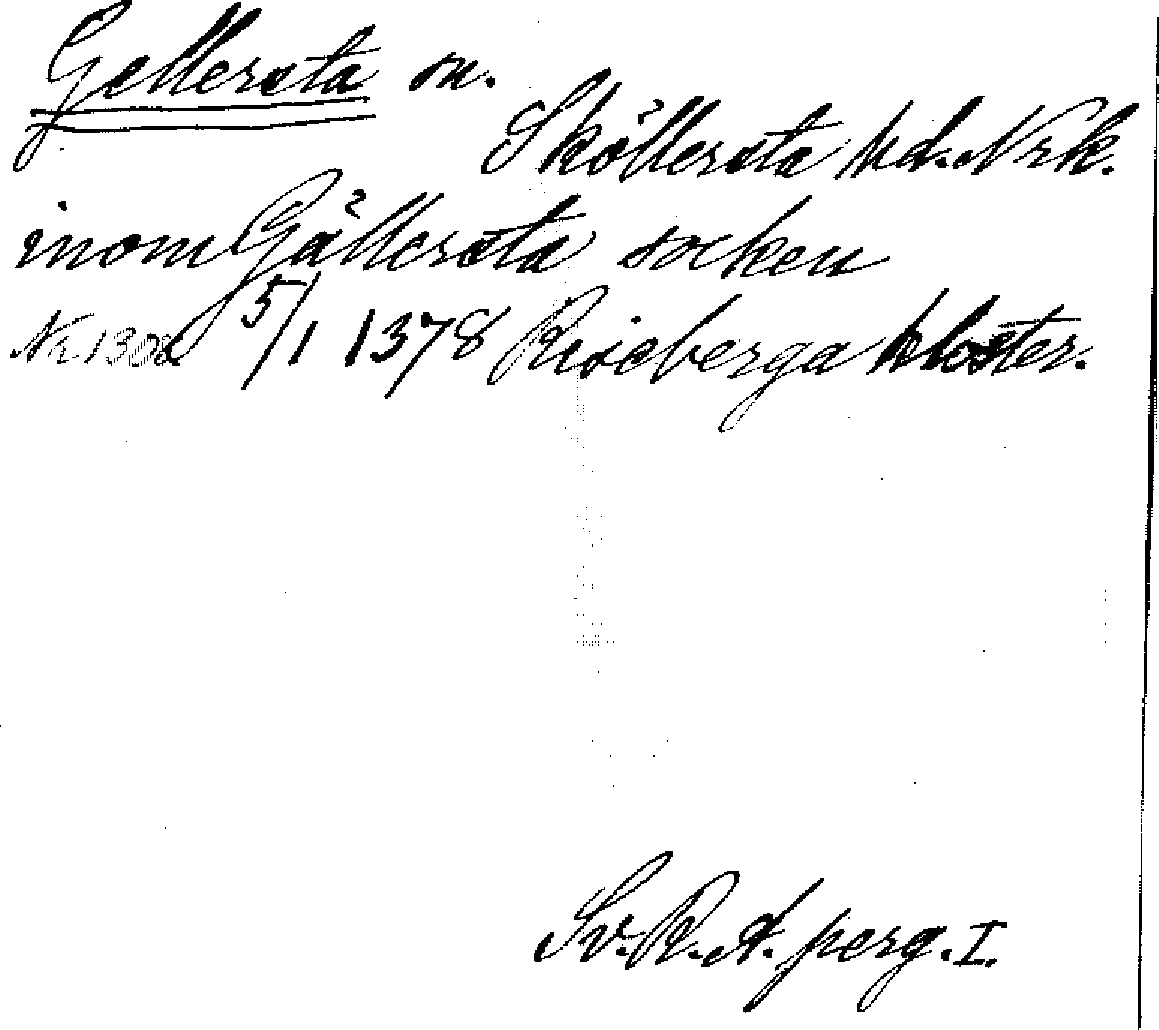 Gellersta sn.
Sköllersta hd. Nrk.
inom Gällersta socken
Nr 1308 5/1 1378 Riseberga kloster.
Sv. R. A. perg. I.